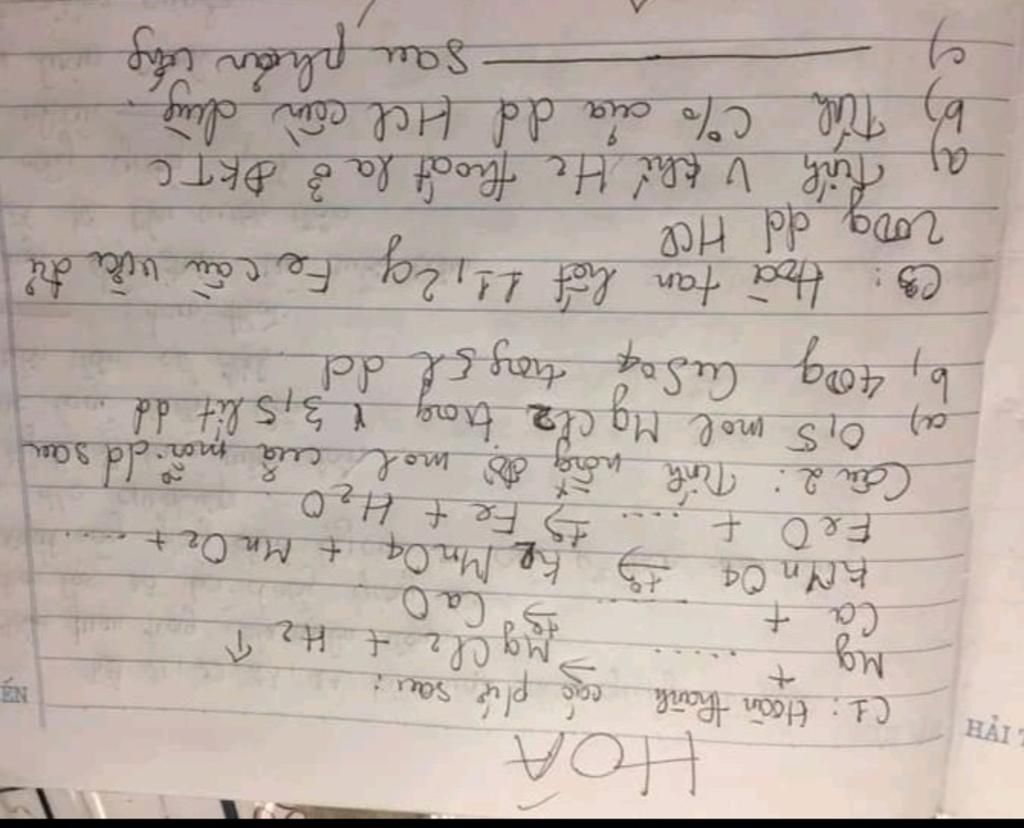 HOÁ
C1: Hoàn thành các ptư sau:
Mg + ..... → MgCl2 + H2 ↑
Ca + ..... t°→ CaO
KMnO4 t°→ K2MnO4 + MnO2 + .....
FeO + ..... t°→ Fe + H2O
Câu 2: Tính nồng độ mol của mỗi dd sau
a) 0,5 mol MgCl2 trong 3,5 lít dd
b, 400g CuSO4 trong 5l dd
C3: Hoà tan hết 11,2g Fe cần vừa đủ
200g dd HCl
a) Tính V khí H2 thoát ra ở ĐKTC
b) Tính C% của dd HCl cần dùng.
c) ——— sau phản ứng
HẢI
ẾN